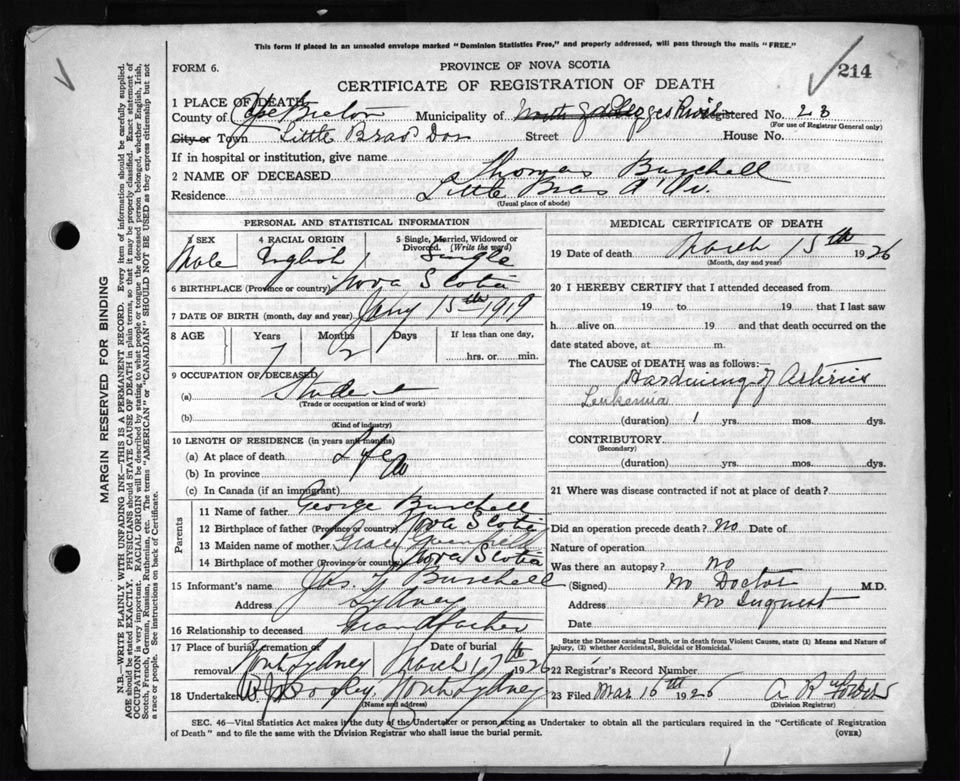 This form if placed in an unsealed envelope marked "Dominion Statistics Free," and properly addressed, will pass through the mails "FREE."
FORM 6.
PROVINCE OF NOVA SCOTIA
214
CERTIFICATE OF REGISTRATION OF DEATH
1 PLACE OF DEATH
County of Cape Breton Municipality of Registered No. 23
(For use of Registrar General only)
City or Town Little Bras Dor Street House No.
If in hospital or institution, give name
2 NAME OF DECEASED Thomas Burchell
Residence Little Bras d'Or.
(Usual place of abode)
PERSONAL AND STATISTICAL INFORMATION
3 SEX 4 RACIAL ORIGIN 5 Single, Married, Widowed or Divorced. (Write the word)
Male English Single
6 BIRTHPLACE (Province or country) Nova Scotia
7 DATE OF BIRTH (month, day and year) Jany 15th 1919
8 AGE Years Months Days If less than one day,
7 2 hrs. or min.
9 OCCUPATION OF DECEASED
(a) Student
(Trade or occupation or kind of work)
(b)
(Kind of industry)
10 LENGTH OF RESIDENCE (in years and months)
(a) At place of death Life
(b) In province
(c) In Canada (if an immigrant)
Parents
11 Name of father George Burchell
12 Birthplace of father (Province or country) Nova Scotia
13 Maiden name of mother Grace
14 Birthplace of mother (Province or country) Nova Scotia
15 Informant's name Jas. Burchell
Address Sydney
16 Relationship to deceased Grandfather
17 Place of burial, cremation or removal North Sydney Date of burial March 17th 1926
18 Undertaker North Sydney
(Name and address)
MEDICAL CERTIFICATE OF DEATH
19 Date of death March 15th 1926
(Month, day and year)
20 I HEREBY CERTIFY that I attended deceased from
19 to 19 that I last saw
h alive on 19 and that death occurred on the
date stated above, at m.
The CAUSE of DEATH was as follows:
Hardining of Arteries
Leukemia
(duration) 1 yrs. mos. dys.
CONTRIBUTORY.
(Secondary)
(duration) yrs. mos. dys.
21 Where was disease contracted if not at place of death?
Did an operation precede death? No Date of
Nature of operation
Was there an autopsy? No
(Signed) No Doctor M.D.
Address No Inquest
Date
State the Disease causing Death, or in death from Violent Causes, state (1) Means and Nature of
Injury, (2) whether Accidental, Suicidal or Homicidal.
22 Registrar's Record Number
23 Filed Mar 16th 1926
(Division Registrar)
SEC. 46—Vital Statistics Act makes it the duty of the Undertaker or person acting as Undertaker to obtain all the particulars required in the "Certificate of Registration
of Death" and to file the same with the Division Registrar who shall issue the burial permit.
(OVER)
MARGIN RESERVED FOR BINDING
N.B.—WRITE PLAINLY WITH UNFADING INK—THIS IS A PERMANENT RECORD. Every item of information should be carefully supplied.
AGE should be stated EXACTLY. PHYSICIANS should STATE CAUSE OF DEATH in plain terms, so that it may be properly classified. Exact statement of
OCCUPATION is very important. RACIAL ORIGIN will be described by stating to what people or tongue the deceased person belonged, whether English, Irish,
Scotch, French, German, Russian, Ruthenian, etc. The terms "AMERICAN" or "CANADIAN" SHOULD NOT BE USED as they express citizenship but not
a race or people. See instructions on back of Certificate.